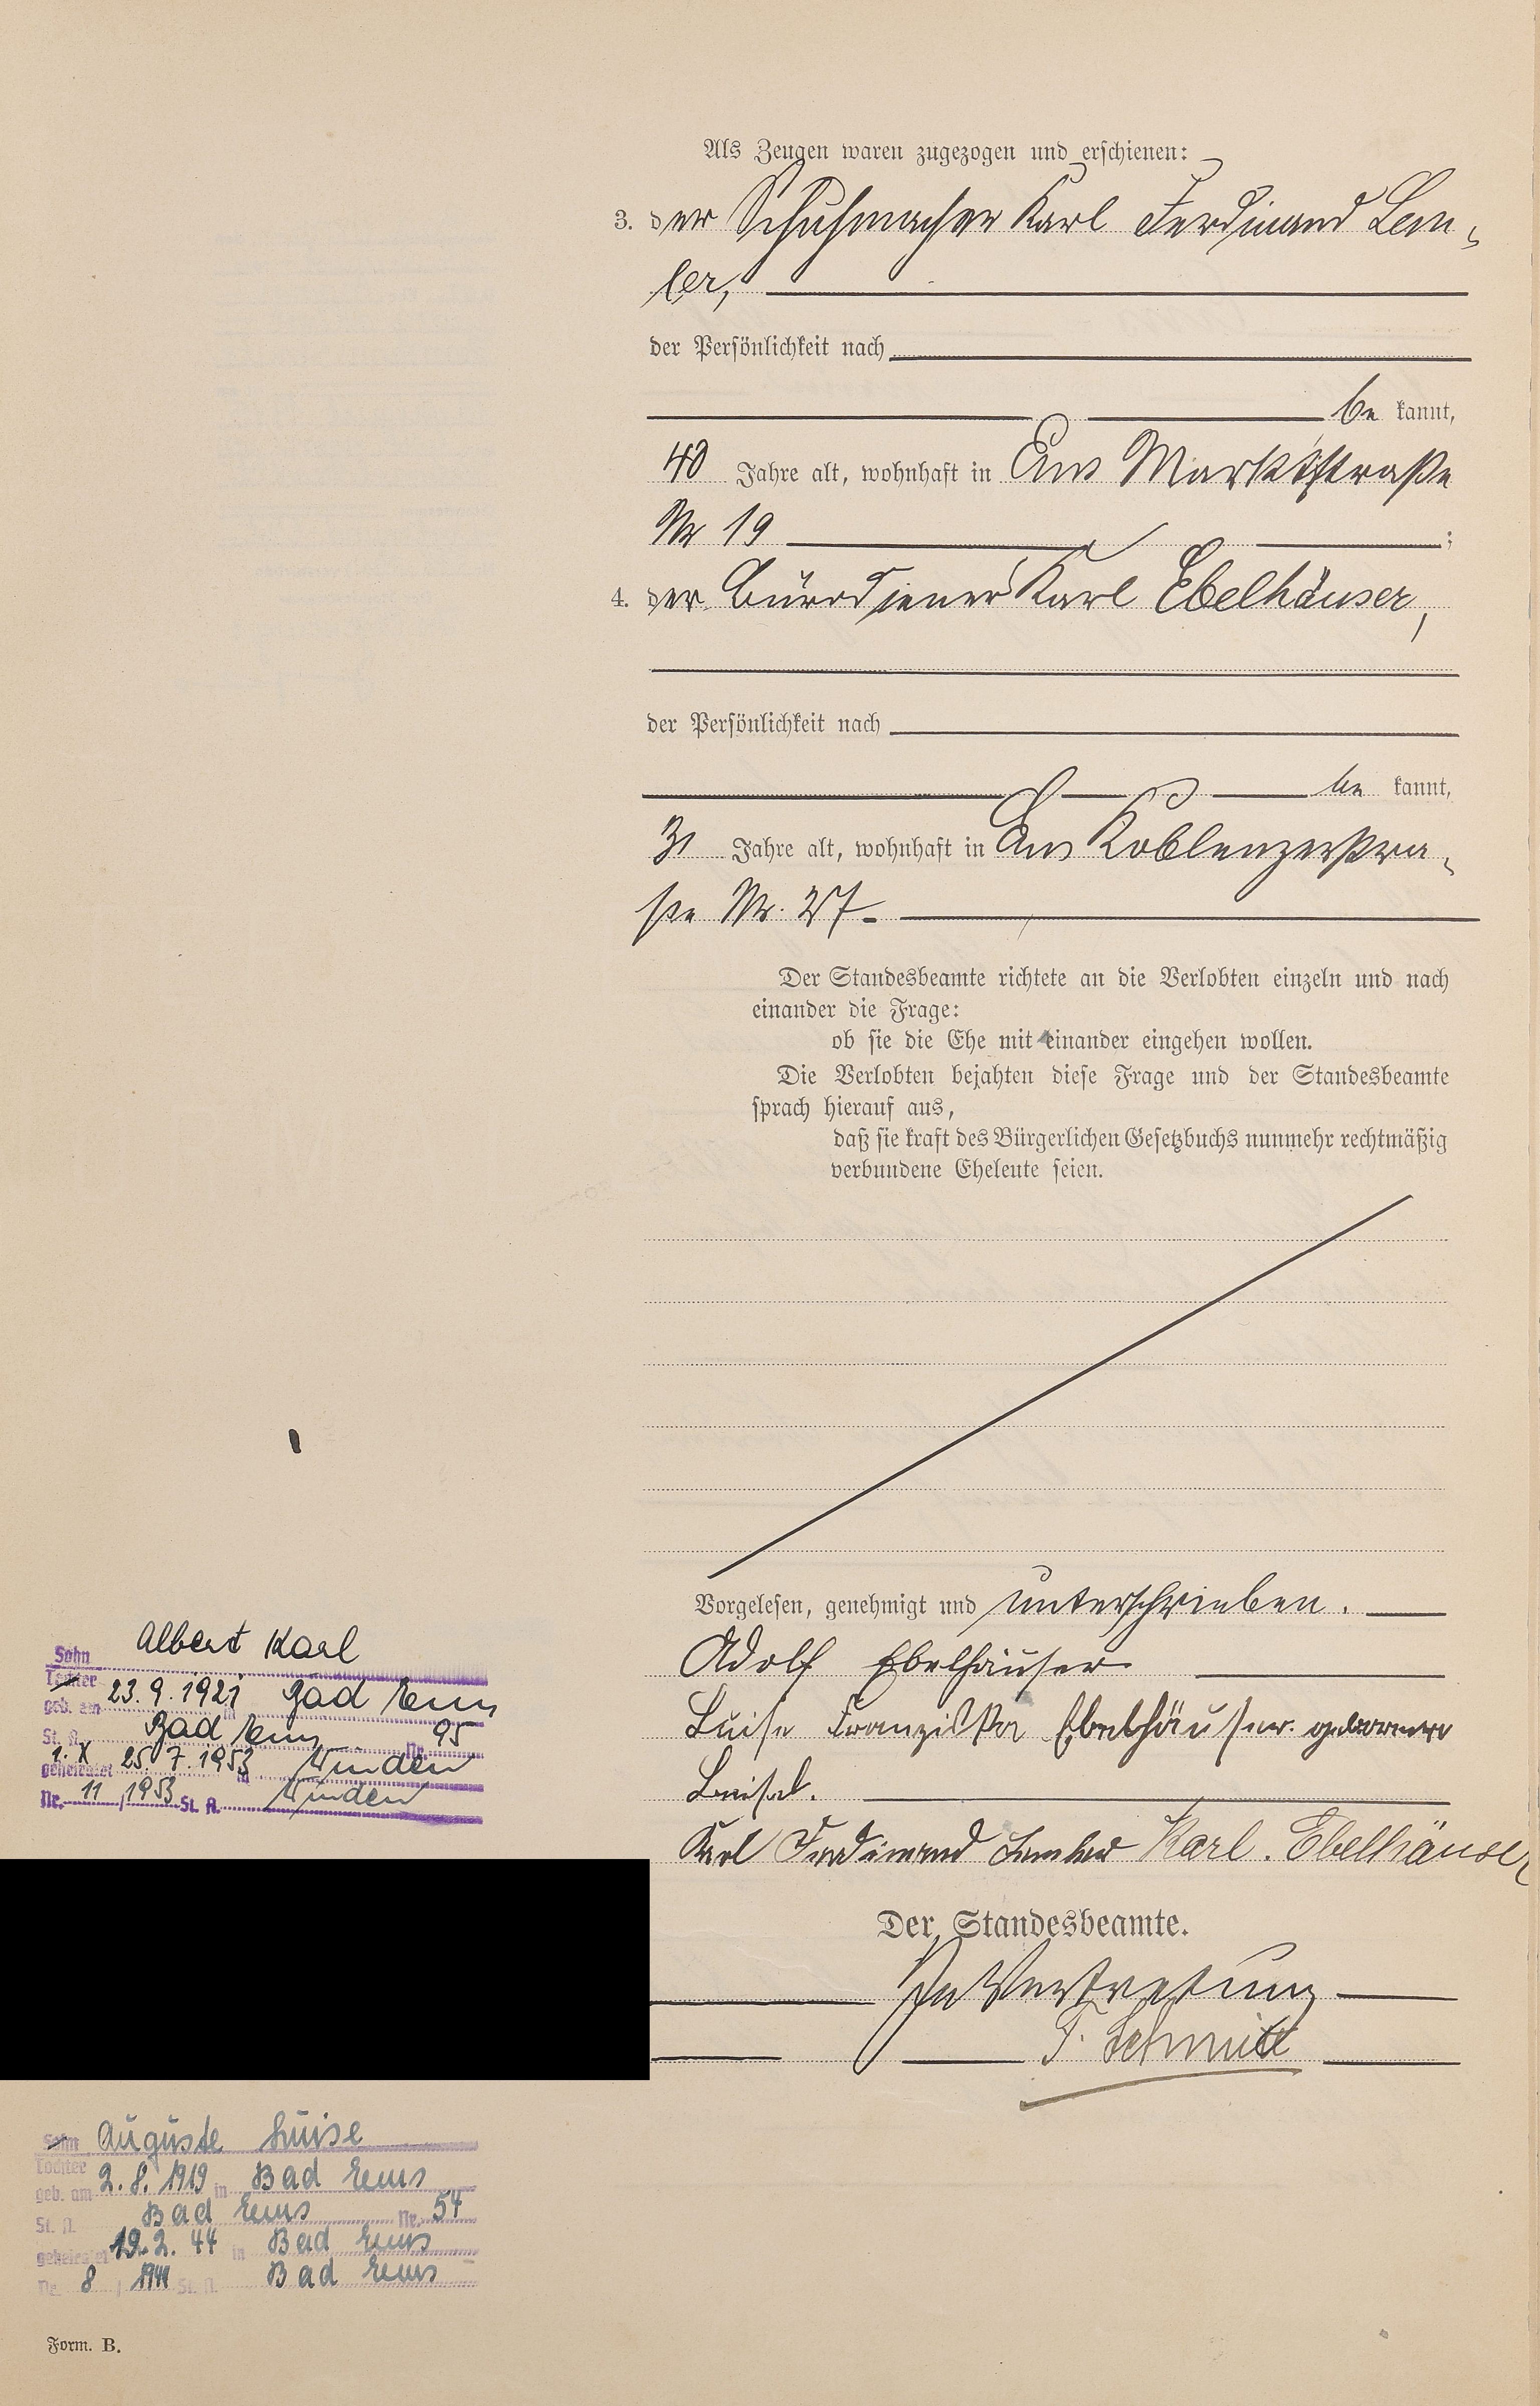 Als Zeugen waren zugezogen und erschienen:
3. der Schuhmacher Karl Ferdinand Lem-
ler,
der Persönlichkeit nach
be kannt,
40 Jahre alt, wohnhaft in Ems Marktstraße
Nr 19 ;
4. der Bürodiener Karl Ebelhäuser,
der Persönlichkeit nach
be kannt,
31 Jahre alt, wohnhaft in Ems Koblenzerstra-
ße Nr. 27.
Der Standesbeamte richtete an die Verlobten einzeln und nach
einander die Frage:
ob sie die Ehe mit einander eingehen wollen.
Die Verlobten bejahten diese Frage und der Standesbeamte
sprach hierauf aus,
daß sie kraft des Bürgerlichen Gesetzbuchs nunmehr rechtmäßig
verbundene Eheleute seien.
Vorgelesen, genehmigt und unterschrieben.
Adolf Ebelhäuser
Luise Franziska Ebelhäuser geborene
Karl Ferdinand Lemler Karl. Ebelhäuser
Der Standesbeamte.
In Vertretung
F. Schmitt
Albert Karl
Sohn
Tochter
geb. am 23.9.1921 in Bad Ems
St. A. Bad Ems Nr. 95
1. X geheiratet 25.7.1953 in Winden
Nr. 11 / 1953 St. A. Winden
Sohn Auguste Luise
Tochter
geb. am 2.8.1919 in Bad Ems
St. A. Bad Ems Nr. 54
geheiratet 19.2.44 in Bad Ems
Nr. 8 / 1944 St. A. Bad Ems
Form. B.